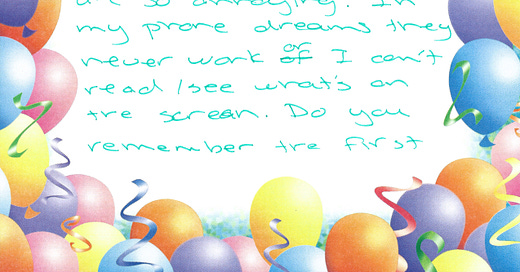 are so annoying. In
my phone dreams they
never work or I can't
read/see what's on
the screan. Do you
remember the first